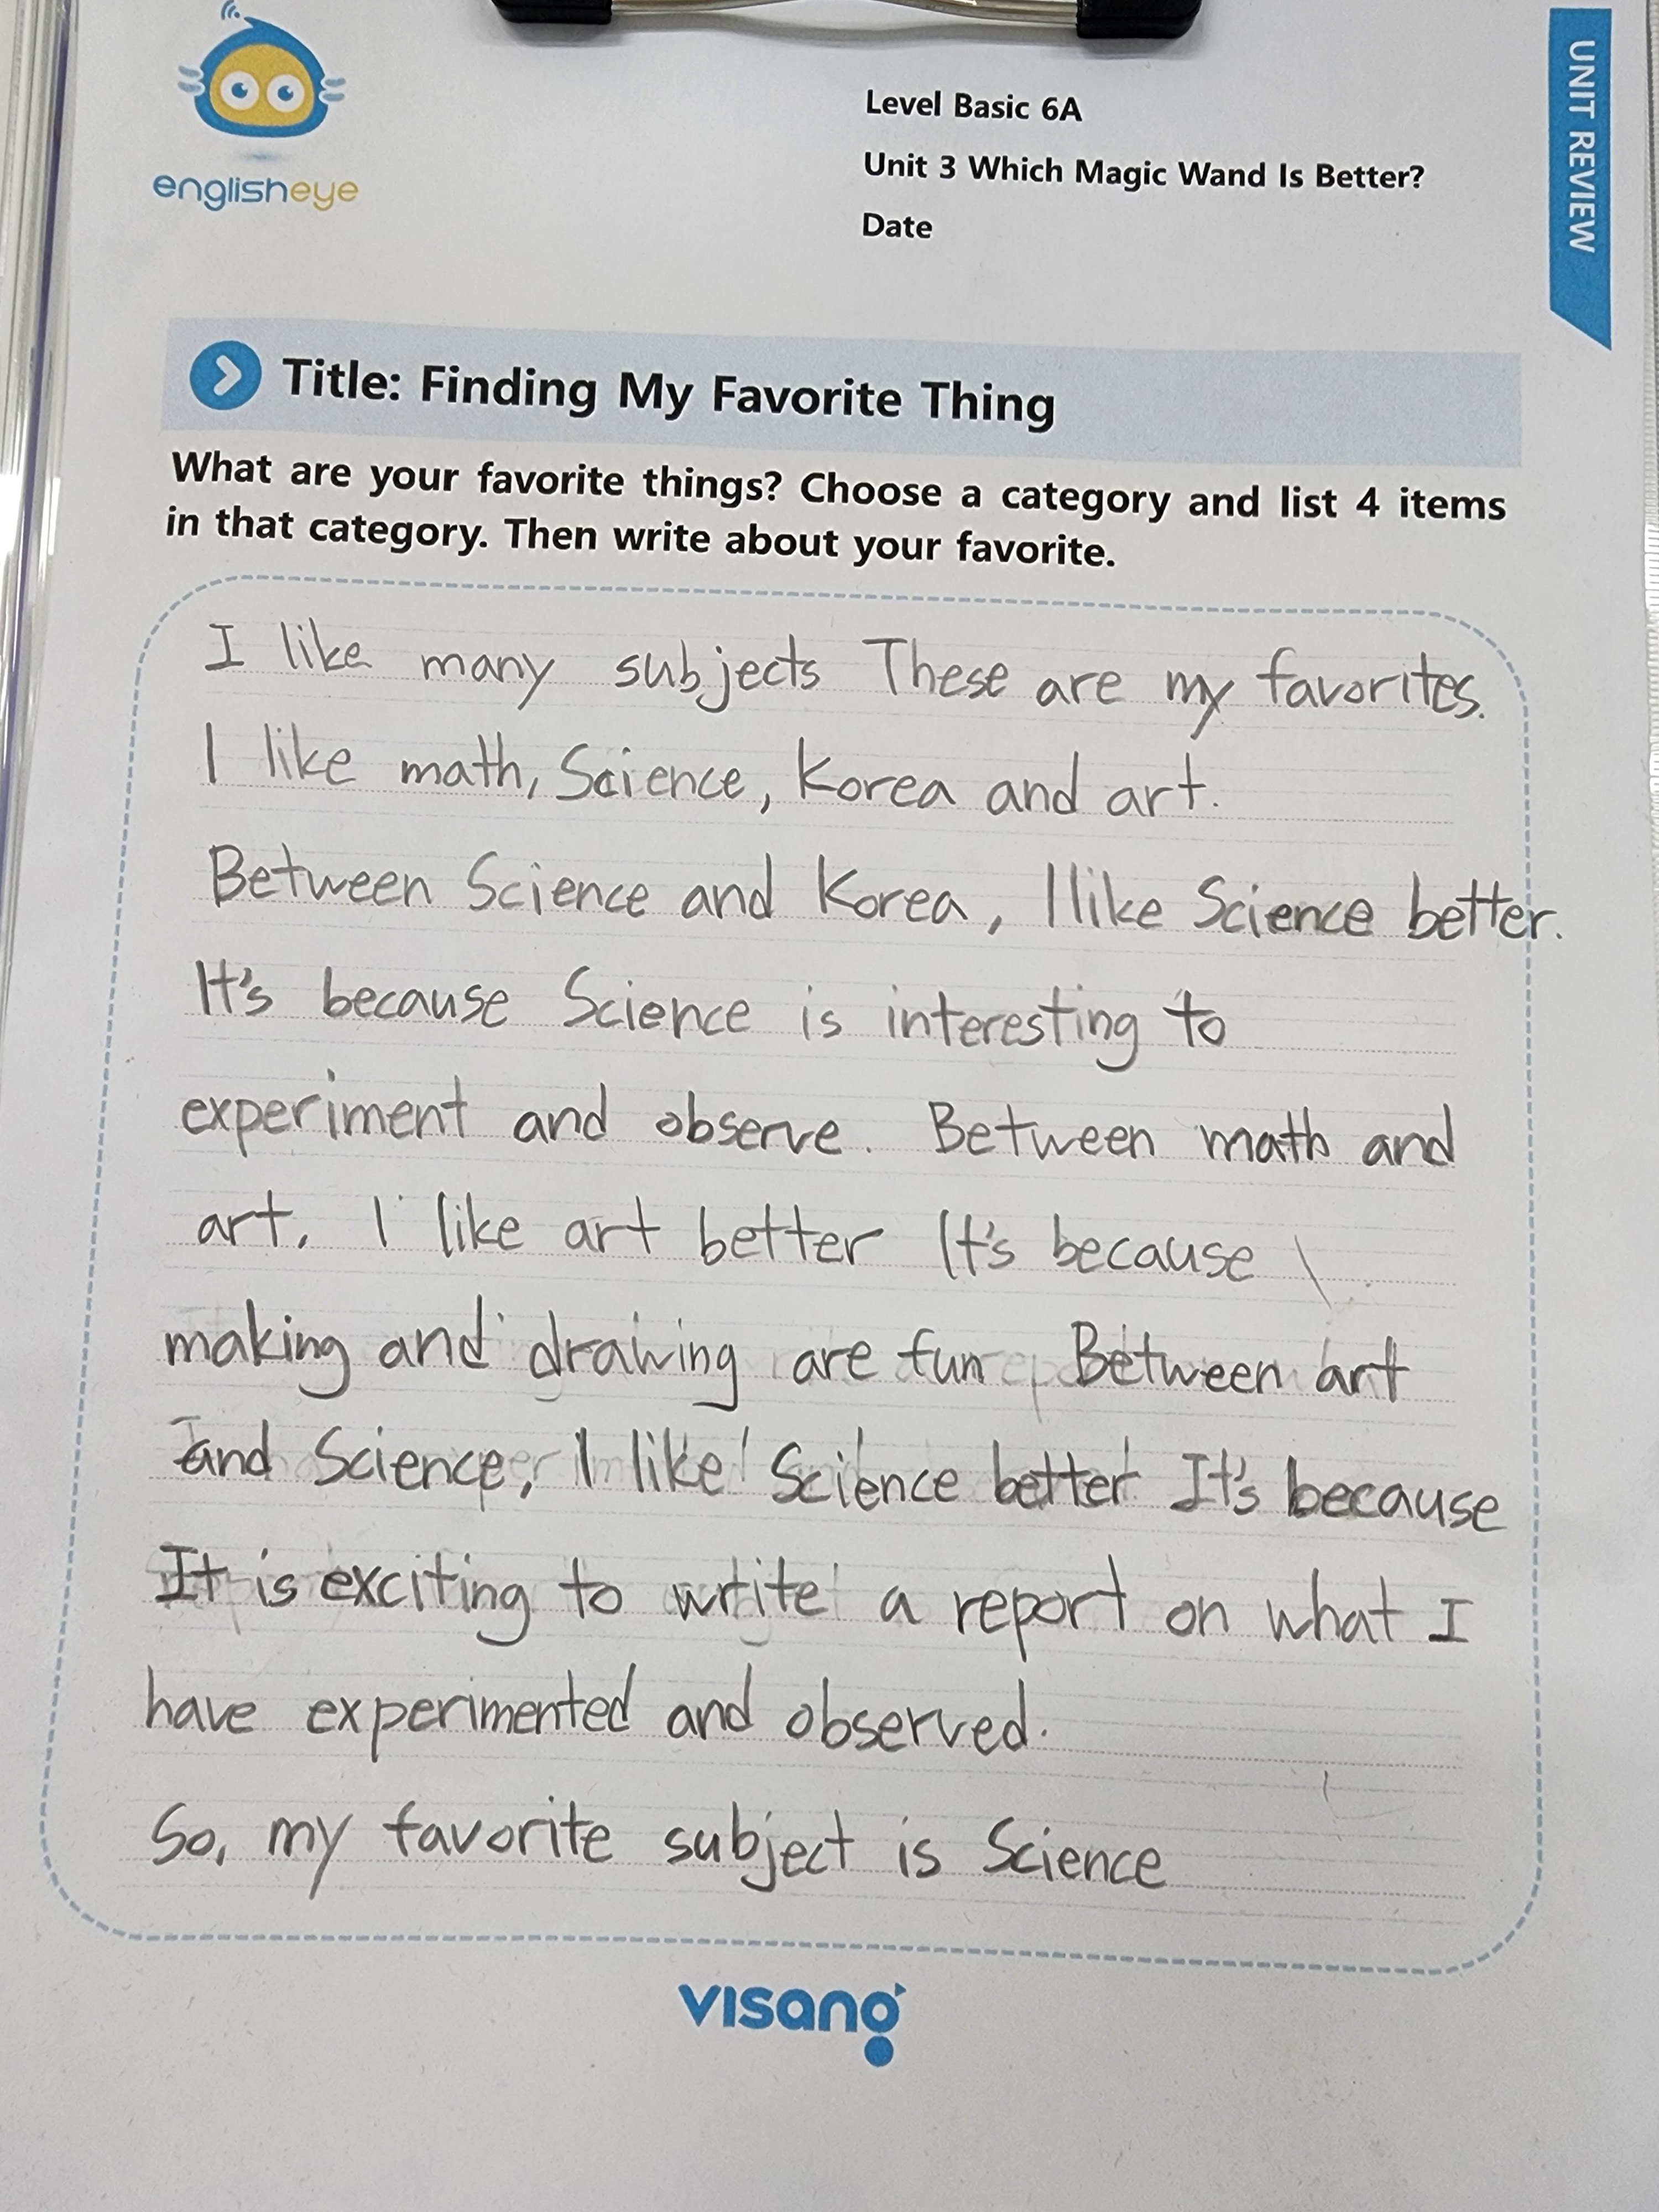 englisheye
Level Basic 6A
Unit 3 Which Magic Wand Is Better?
Date
UNIT REVIEW
Title: Finding My Favorite Thing
What are your favorite things? Choose a category and list 4 items
in that category. Then write about your favorite.
I like many subjects These are my favorites.
I like math, Science, Korea and art.
Between Science and Korea, I like Science better.
It's because Science is interesting to
experiment and observe. Between math and
art, I like art better It's because
making and drawing are fun Between art
and Science, I like Science better It's because
It is exciting to write a report on what I
have experimented and observed.
So, my favorite subject is Science
visang